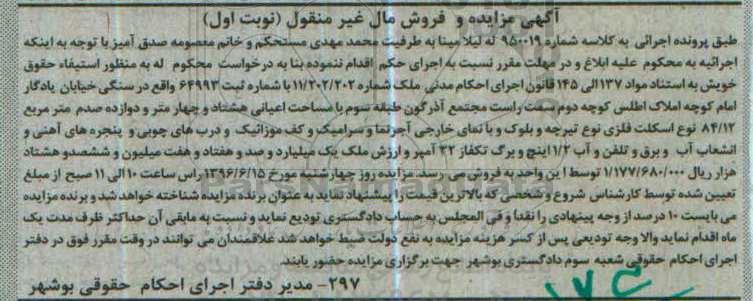 آگهی مزایده و فروش مال غیر منقول (نوبت اول)
طبق پرونده اجرائی به کلاسه شماره ۹۵۰۰۱۹ له لیلا مینا به طرفیت محمد مهدی مستحکم و خانم معصومه صدق آمیز با توجه به اینکه
اجرائیه به محکوم علیه ابلاغ و در مهلت مقرر نسبت به اجرای حکم اقدام ننموده بنا به درخواست محکوم له به منظور استیفاء حقوق
خویش به استناد مواد ۱۳۷ الی ۱۴۵ قانون اجرای احکام مدنی ملک شماره ۱۱/۲۰۲/۲۰۲ با شماره ثبت ۶۴۹۹۳ واقع در سنگی خیابان یادگار
امام کوچه املاک اطلس کوچه دوم سمت راست مجتمع آذرگون طبقه سوم با مساحت اعیانی هشتاد و چهار متر و دوازده صدم متر مربع
۸۴/۱۲ نوع اسکلت فلزی نوع تیرچه و بلوک و با نمای خارجی آجرنما و سرامیک و کف موزائیک و درب های چوبی و پنجره های آهنی و
انشعاب آب و برق و تلفن و آب ۱/۲ اینچ و برگ تکفاز ۳۲ آمپر و ارزش ملک یک میلیارد و صد و هفتاد و هفت میلیون و ششصدو هشتاد
هزار ریال ۱/۱۷۷/۶۸۰/۰۰۰ توسط این واحد به فروش می رسد. مزایده روز چهارشنبه مورخ ۱۳۹۶/۶/۱۵ راس ساعت ۱۰ الی ۱۱ صبح از مبلغ
تعیین شده توسط کارشناس شروع و شخصی که بالاترین قیمت را پیشنهاد نماید به عنوان برنده مزایده شناخته خواهد شد و برنده مزایده
می بایست ۱۰ درصد از وجه پینهادی را نقدا و فی المجلس به حساب دادگستری تودیع نماید و نسبت به مابقی آن حداکثر ظرف مدت یک
ماه اقدام نماید والا وجه تودیعی پس از کسر هزینه مزایده به نفع دولت ضبط خواهد شد علاقمندان می توانند در وقت مقرر فوق در دفتر
اجرای احکام حقوقی شعبه سوم دادگستری بوشهر جهت برگزاری مزایده حضور یابند.
۲۹۷- مدیر دفتر اجرای احکام حقوقی بوشهر
ParsNamadData